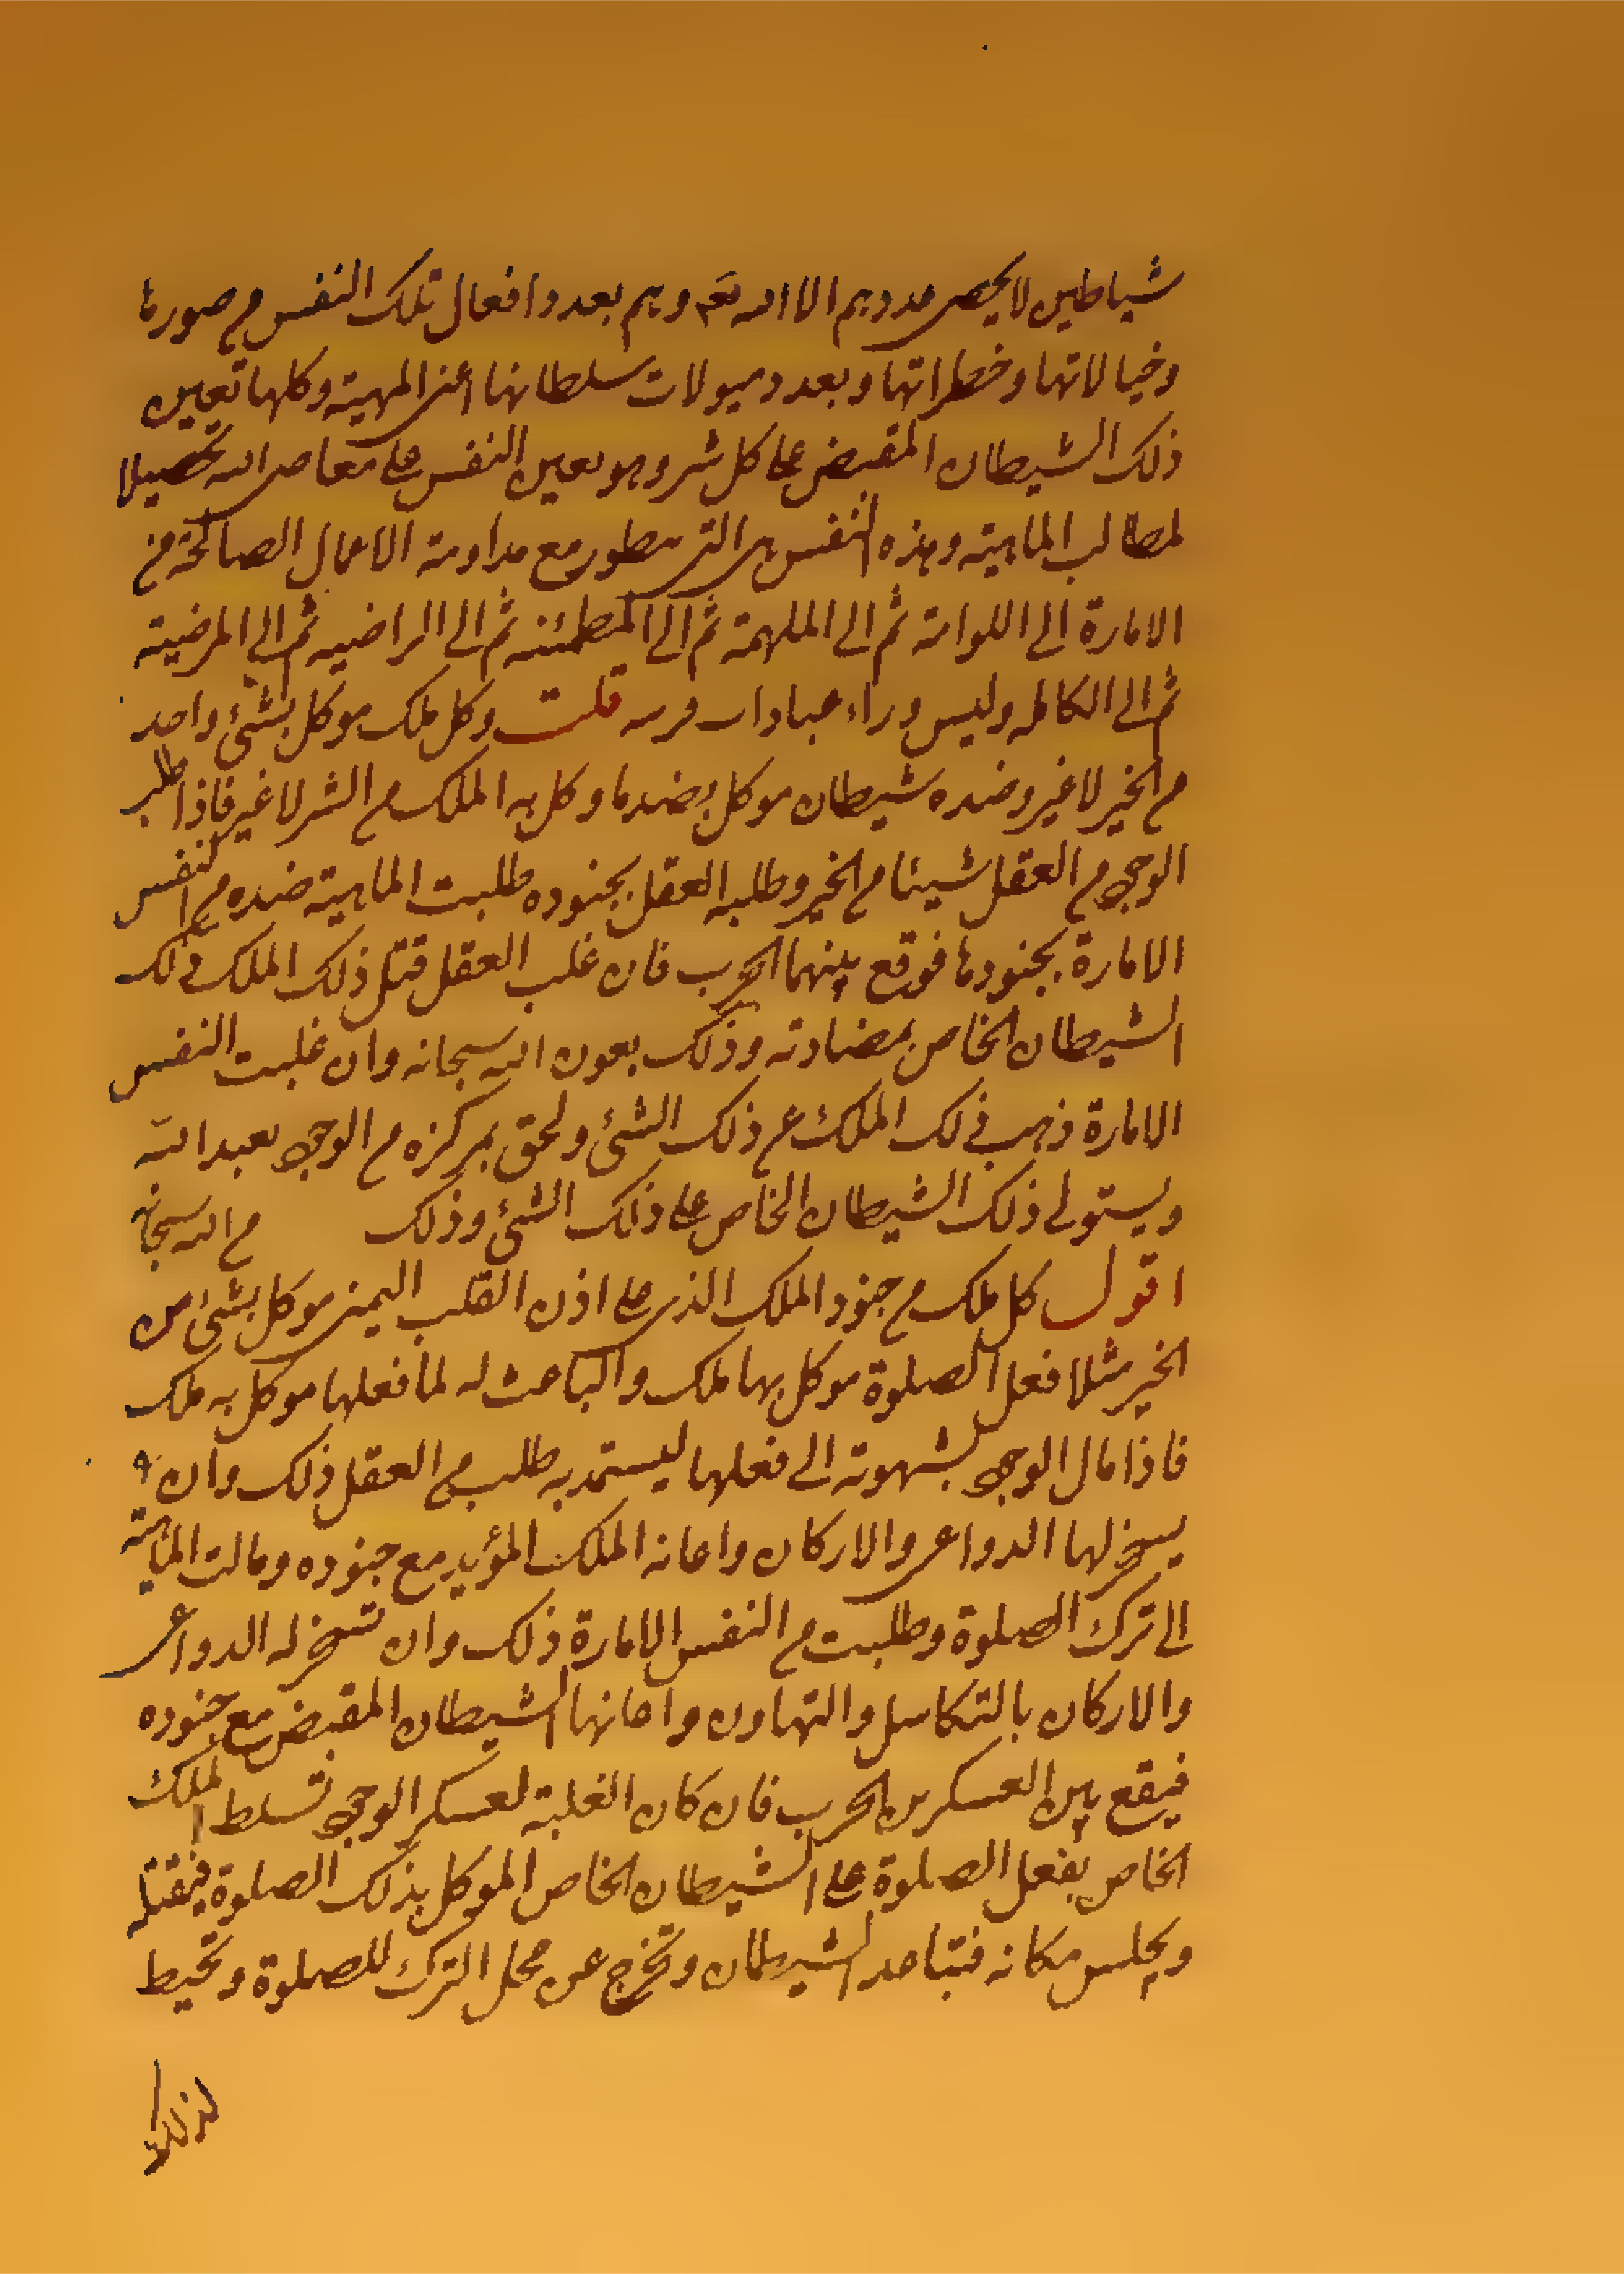 شياطين لا يحصى عددهم الا الله تعم وهم بعدد افعال تلك النفس م صورها
وخيالاتها وخطراتها وبعدد ميولات سلطانها اعنى المهية وكلها تعين
ذلك الشيطان المقيض على كل شر وهو يعين النفس على معاصى الله تحصيلا
لمطالب الماهية وهذه النفس هى التى تتطور مع مداومة الاعمال الصالحة من
الامارة الى اللوامة ثم الى الملهمة ثم الى المطمئنه ثم الى الراضيه ثم الى المرضية
ثم الى الكامله وليس وراء عبادان قريه قلت وكل ملك موكل بشئ واحد
م الخير لا غير وضده شيطان موكل بضد ما وكل به الملك م الشر لا غير فاذا طلب
الوجود م العقل شيئا م الخير وطلبه العقل بجنوده طلبت الماهية ضده م النفس
الامارة بجنودها فوقع بينهما الحرب فان غلب العقل قتل ذلك الملك ذلك
الشيطان الخاص بمضادته وذلك بعون الله سبحانه وان غلبت النفس
الامارة ذهب ذلك الملك عن ذلك الشئ ولحق بمركزه م الوجود يعبد الله
ويستولى ذلك الشيطان الخاص على ذلك الشئ وذلك م الله سبحانه
اقول كل ملك م جنود الملك الذى على اذن القلب اليمنى موكل بشئ من
الخير مثلا فعل الصلوة موكل بها ملك والباعث له لما فعلها موكل به ملك
فاذا مال الوجود بشهوته الى فعلها ليستمد به طلب م العقل ذلك وان
يسخر لها الدواعى والاركان واعانه الملك المؤيد مع جنوده ومالت الماهية
الى ترك الصلوة وطلبت م النفس الامارة ذلك وان تسخر له الدواعى
والاركان بالتكاسل والتهاون واعانها الشيطان المقيض مع جنوده
فيقع بين العسكرين الحرب فان كان الغلبة لعسكر الوجود تسلط الملك
الخاص بفعل الصلوة على الشيطان الخاص الموكل بذلك الصلوة فيقتله
ويجلس مكانه فتباعد الشيطان وتخرج عن محل الترك للصلوة وتحيط